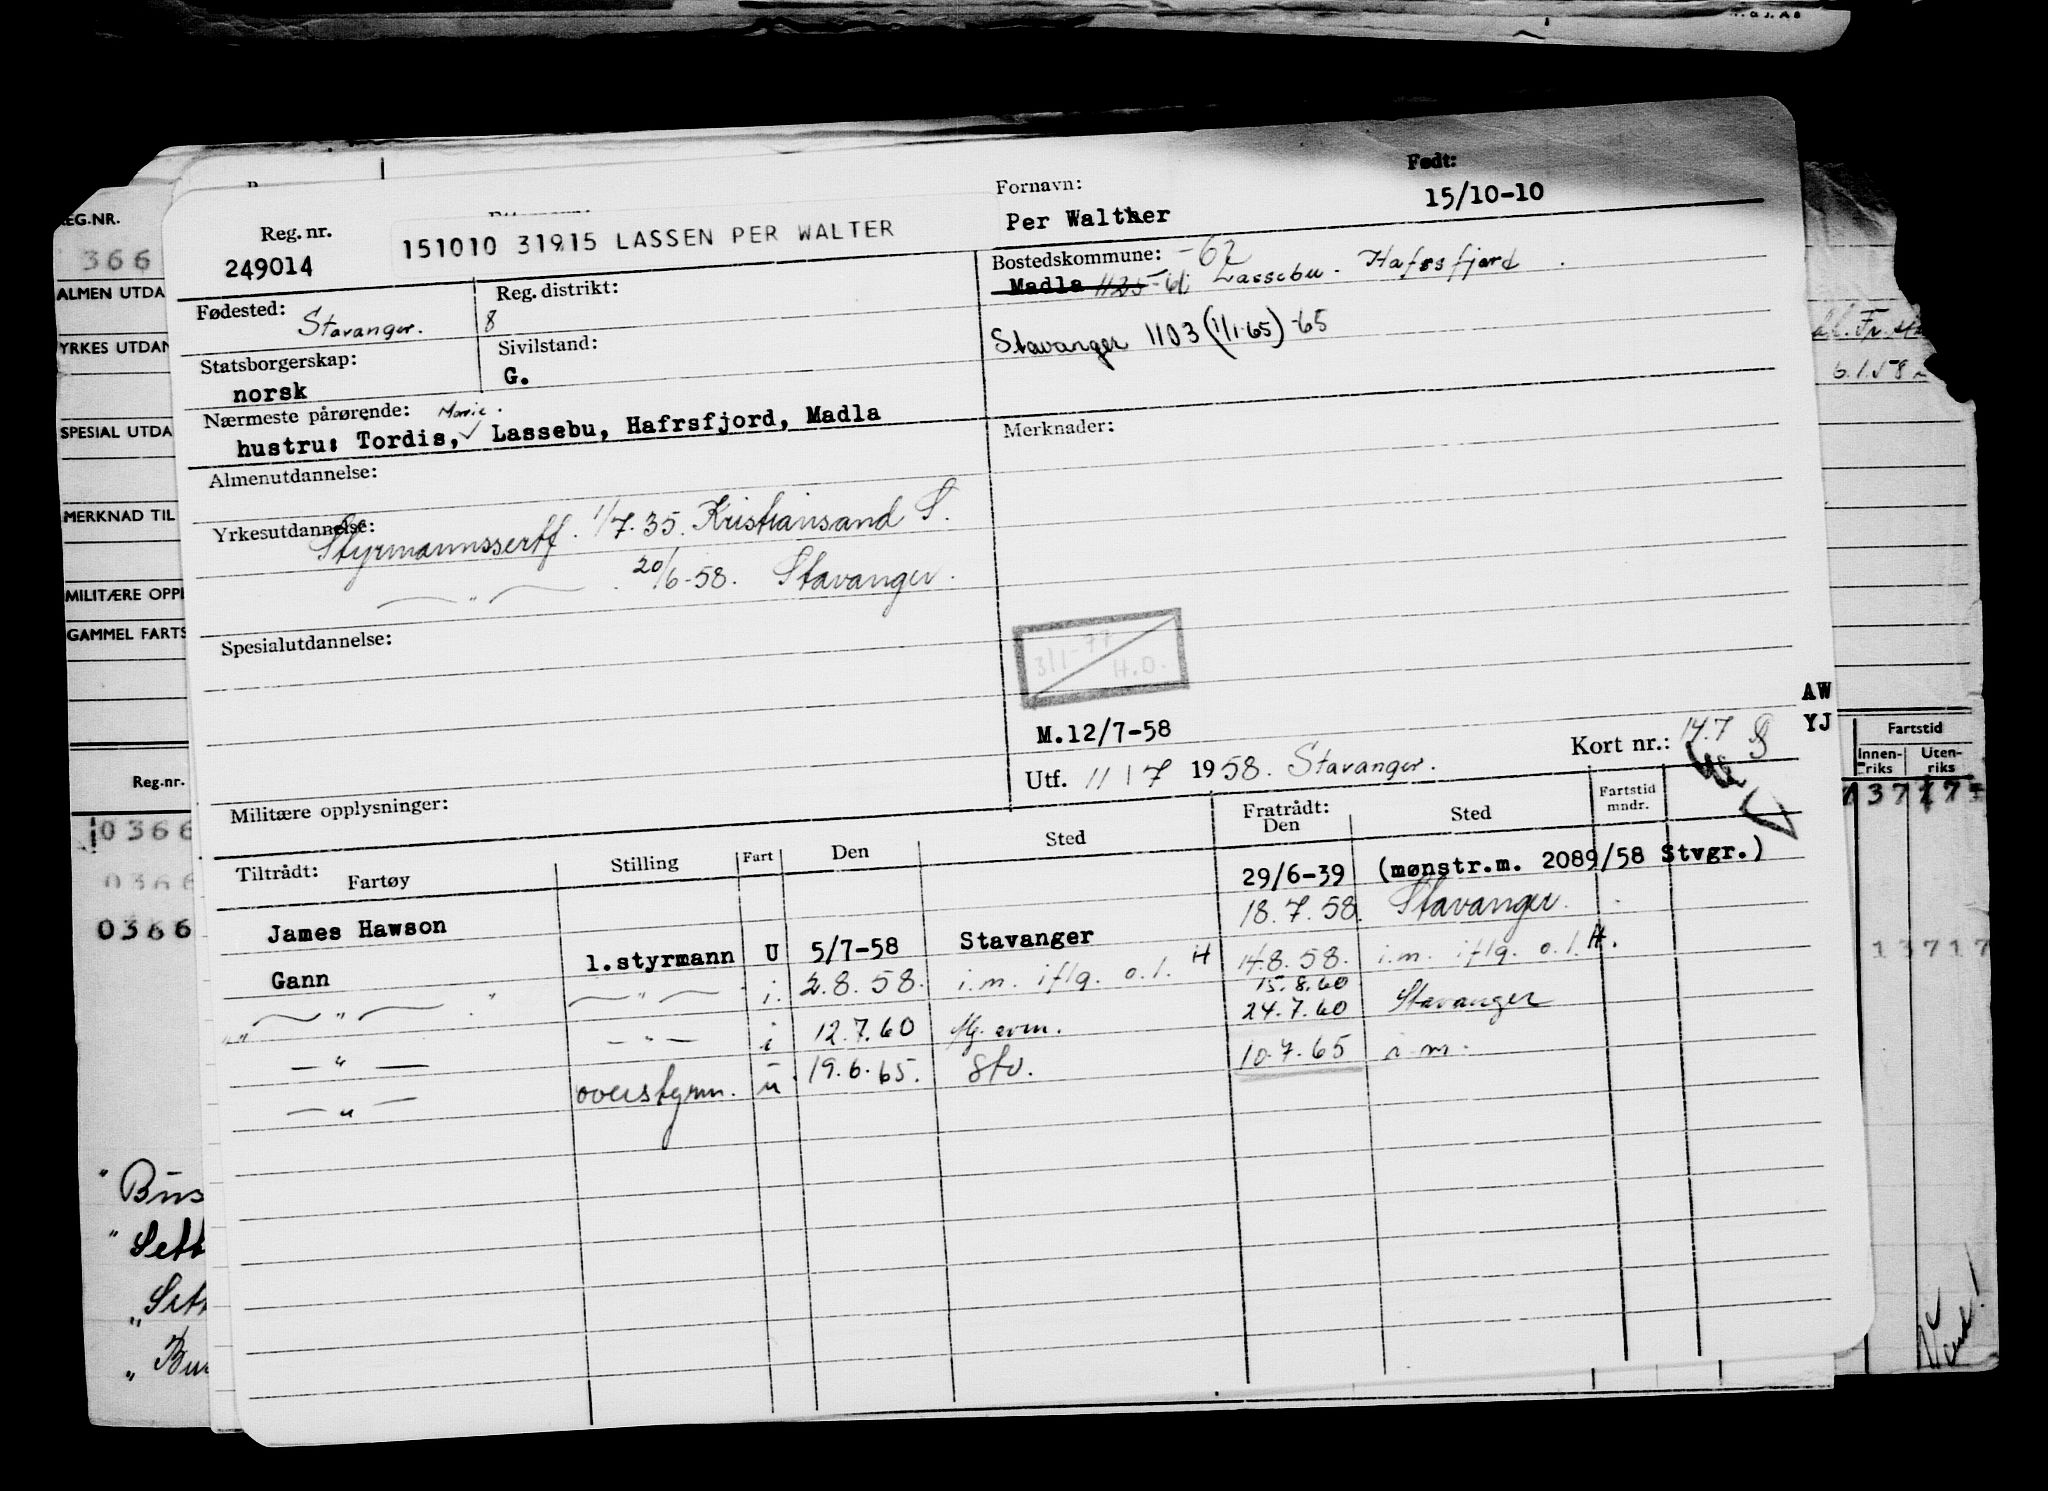 Reg. nr.
249014
151010 31915 LASSEN PER WALTER
Fornavn:
Per Walther
Født:
15/10-10
Fødested:
Stavanger.
Reg. distrikt:
8
Bostedskommune: -62
Madla 1125-61 Lassebu - Hafrsfjord
Stavanger 1103 (1/1-65) -65
Statsborgerskap:
norsk
Sivilstand:
G.
Nærmeste pårørende: Marie.
hustru: Tordis, Lassebu, Hafrsfjord, Madla
Merknader:
Almenutdannelse:
Yrkesutdannelse:
Styrmannssertf. 1/7-35. Kristiansand S.
— " — 20/6-58. Stavanger.
Spesialutdannelse:
3/1-77
H.O.
M.12/7-58
Utf. 11/7 1958. Stavanger.
Kort nr.: 147
AW
YJ
Militære opplysninger:
Tiltrådt:
Fartøy
Stilling
Fart
Den
Sted
Fratrådt:
Den
Sted
Fartstid
mndr.
James Hawson 29/6-39 (mønstr.m. 2089/58 Stvgr.)
Gann 1.styrmann U 5/7-58 Stavanger 18.7.58. Stavanger.
— " — — " — i. 2.8.58. i.m. iflg. o.l. H 14.8.58. i.m. iflg. o.l. H.
15.8.60
— " — — " — i 12.7.60 24.7.60 Stavanger
— " — overstyrm. u. 19.6.65. Stv. 10.7.65 i.m.
EG.NR.
366
ALMEN UTDA
YRKES UTDAN
SPESIAL UTDA
MERKNAD TIL
MILITÆRE OPPL
GAMMEL FARTS
Reg.nr.
0366
0366
0366
" Bus
" Sett
" Sett
" Bur
6.1.58
Fartstid
Innen-
riks
Uten-
riks
13717